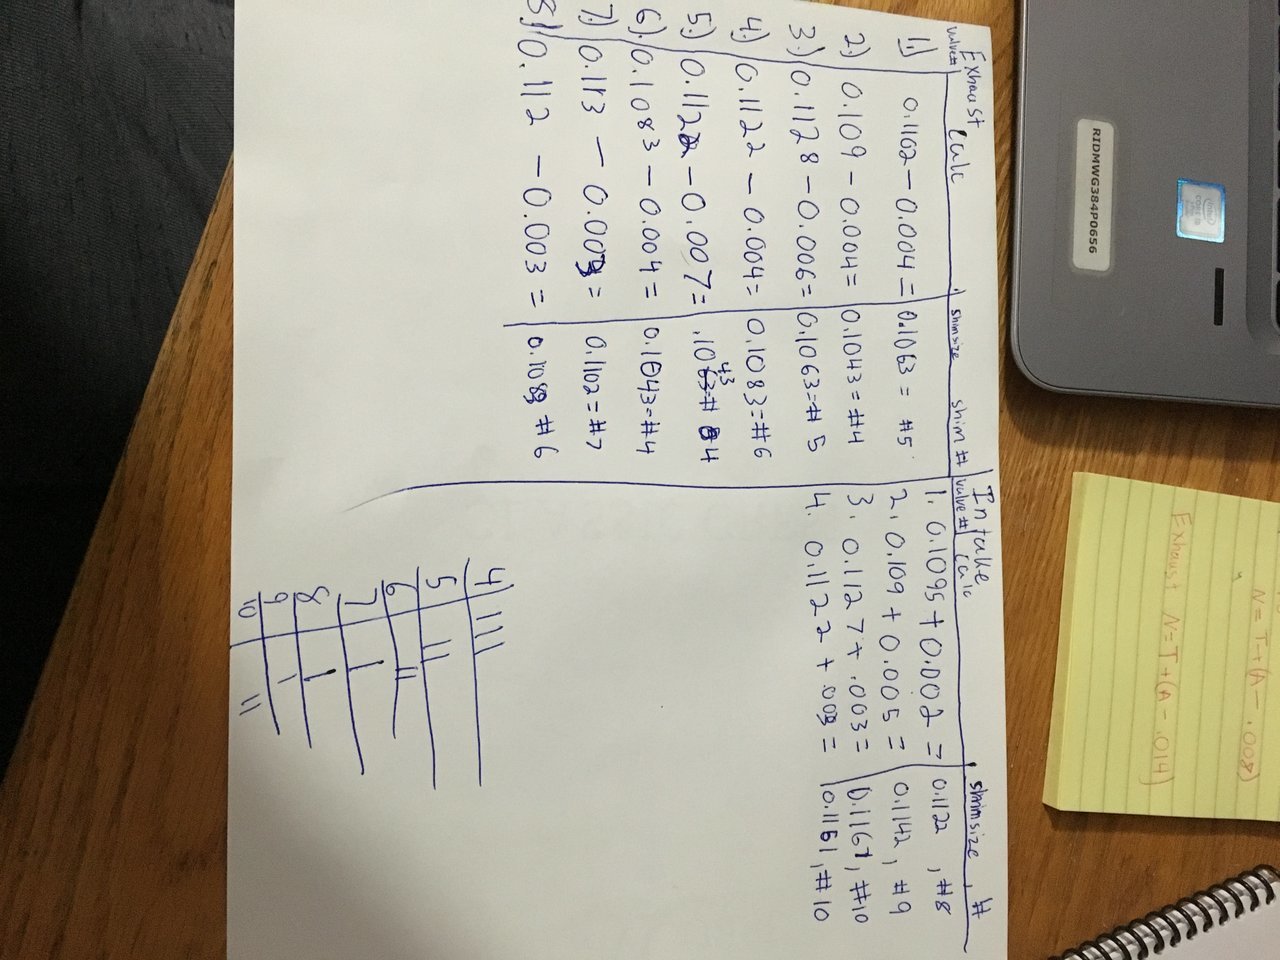 Exhaust
valve# Calc shim size shim #
1.) 0.1102 - 0.004 = 0.1063 = #5
2.) 0.109 - 0.004 = 0.1043 = #4
3.) 0.1128 - 0.006 = 0.1063 = # 5
4.) 0.1122 - 0.004 = 0.1083 = #6
5.) 0.1122 - 0.007 = .1063 43 # 4
6.) 0.1083 - 0.004 = 0.1043 = #4
7.) 0.113 - 0.003 = 0.1102 = #7
8.) 0.112 - 0.003 = 0.1083 #6
Intake
valve# calc shim size #
1. 0.1095 + 0.002 = 0.1122, #8
2. 0.109 + 0.005 = 0.1142, #9
3. 0.1127 + .003 = 0.1161, #10
4. 0.1122 + .003 = 0.1161, #10
4) 111
5 11
6 11
7 1
8 1
9 1
10 11
N = T + (A - .008)
Exhaust N = T + (A - .014)
RIDMWG384P0656
intel
CORE i5